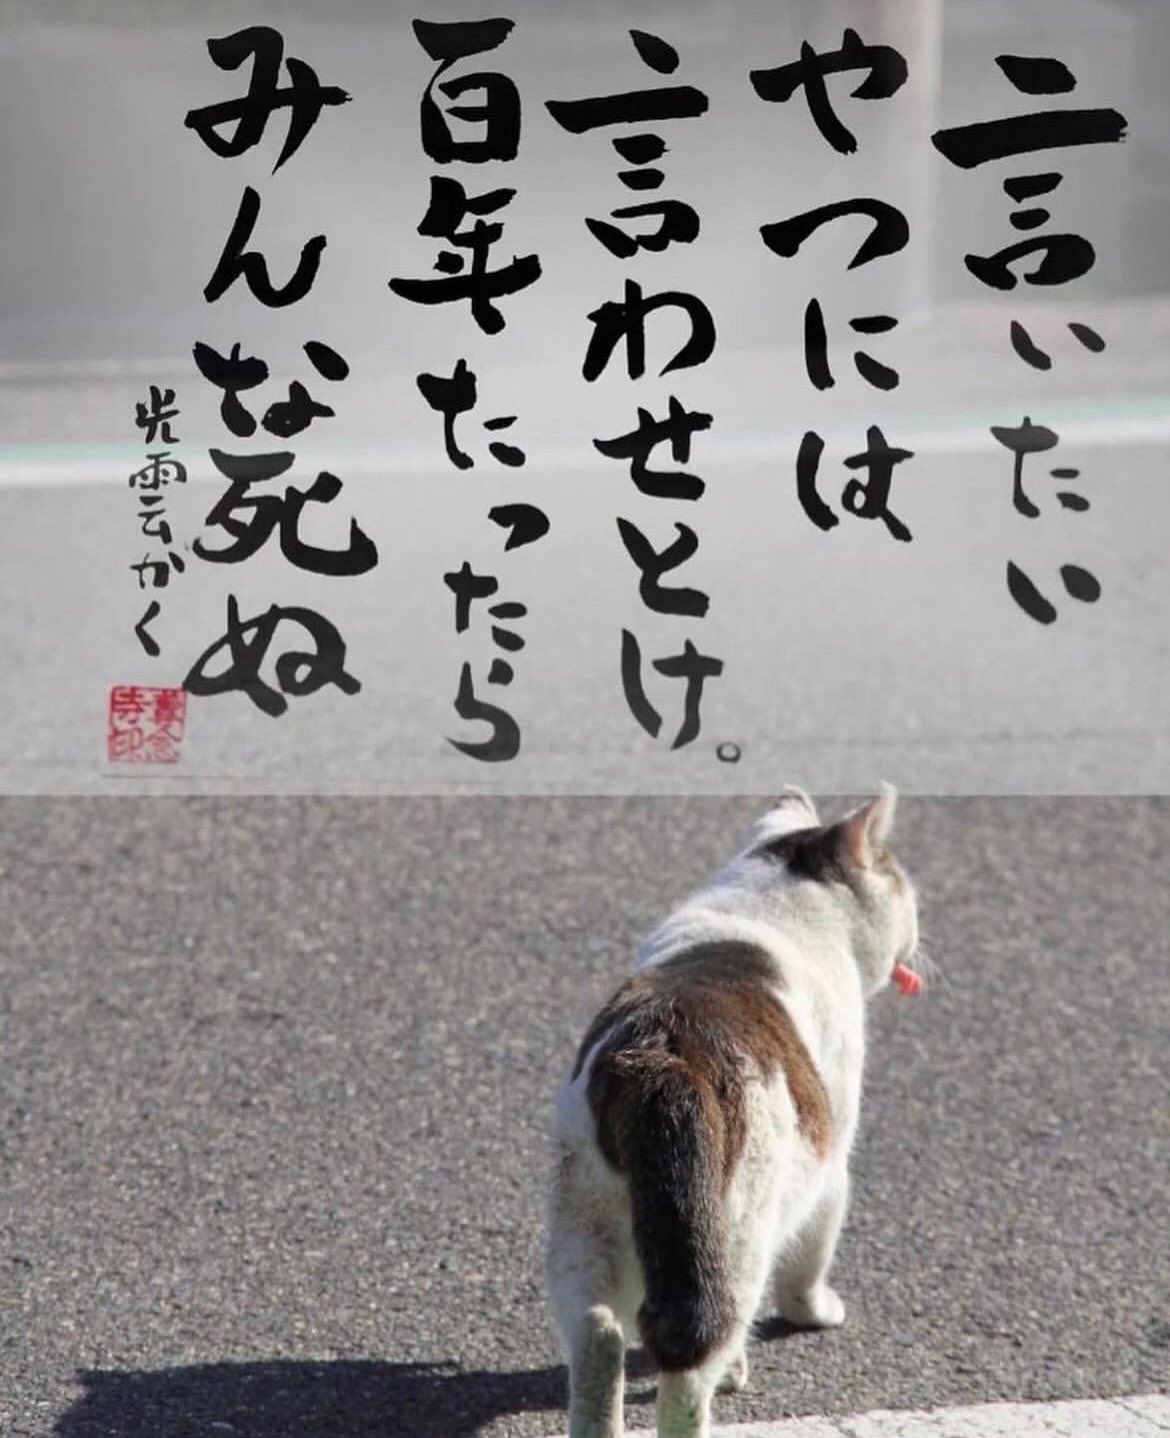 言いたい
やつには
言わせとけ。
百年たったら
みんな死ぬ
光雲かく